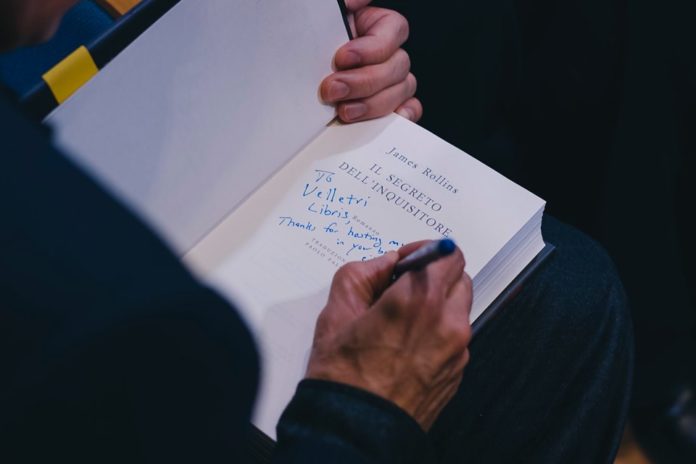 James Rollins
IL SEGRETO
DELL'INQUISITORE
Romanzo
To
Velletri
Libris,
Thanks for hosting
in your
TRADUZIONE
PAOLO